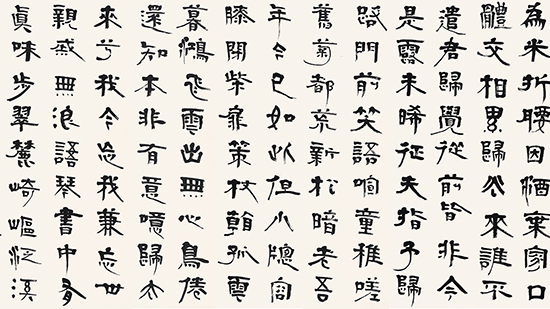 為米折腰因酒棄家口
體交相累歸去來誰不
遣君歸覺從前皆非今
是露未晞征夫指予歸
路門前笑語喧童稚嗟
舊菊都荒新松暗老吾
年今已如此但小牕容
膝閉柴扉策杖看孤雲
暮鴻飛雲出無心鳥倦
還知本非有意噫歸去
來兮我今忘我兼忘世
親戚無浪語琴書中有
眞味步翠麓崎嶇泛溪